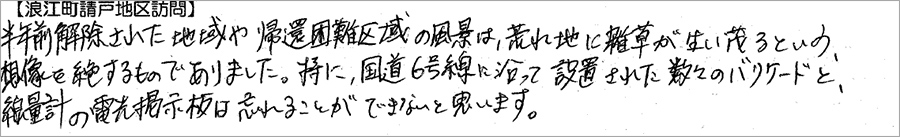 【浪江町請戸地区訪問】
半年前解除された地域や帰還困難区域の風景は、荒れ地に雑草が生い茂るという、
想像を絶するものでありました。特に、国道6号線に沿って設置された数々のバリケードと、
線量計の電光掲示板は忘れることができないと思います。